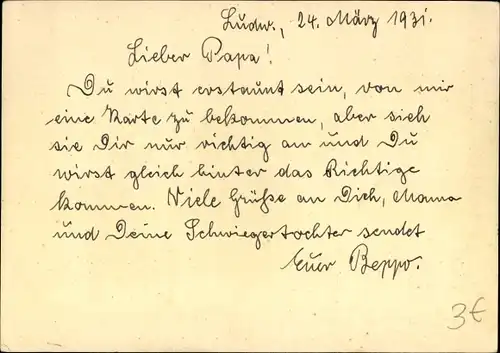 Ludw., 24. März 1931.
Lieber Papa!
Du wirst erstaunt sein, von mir
eine Karte zu bekommen, aber sieh
sie Dir nur richtig an und Du
wirst gleich hinter das Richtige
kommen. Viele Grüße an Dich, Mama
und Deine Schwiegertochter sendet
Euer Beppo.
3€